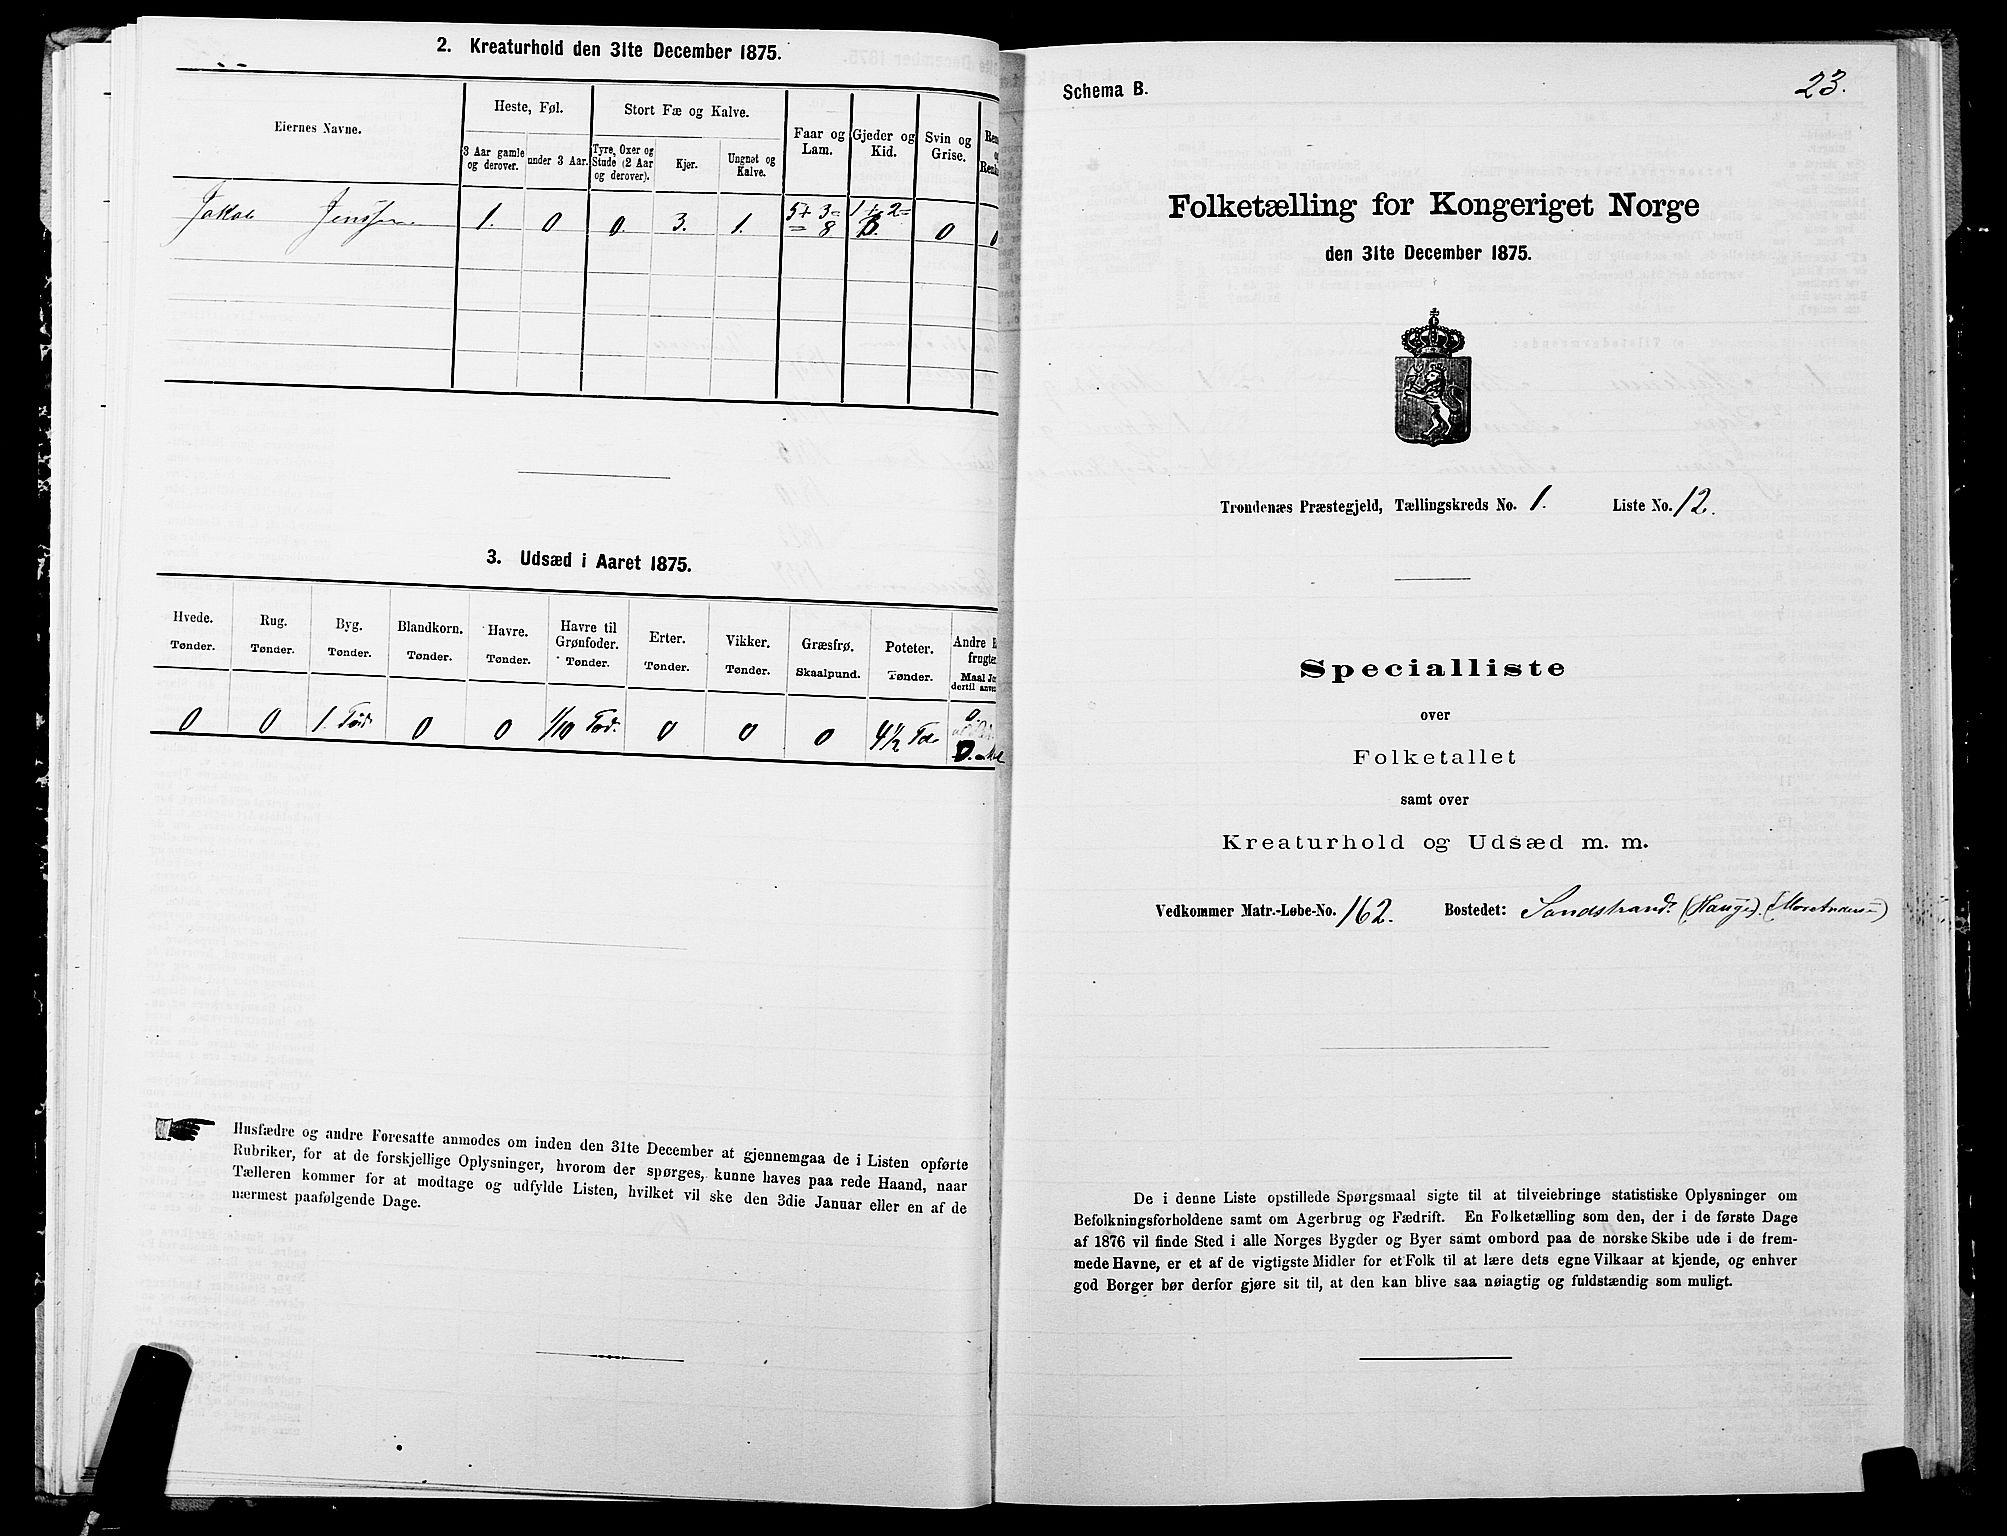 2. Kreaturhold den 31te December 1875.
Eiernes Navne.
Heste, Føl.
Stort Fæ og Kalve.
Faar og Lam.
Gjeder og Kid.
Svin og Grise.
3 Aar gamle og derover.
under 3 Aar.
Tyre, Oxer og Stude (2 Aar og derover).
Kjør.
Ungnøt og Kalve.
Jakob Jenssen 1. 0 0. 3. 1. 5 + 3 = 1 + 2 = 0 0
= 8
3. Udsæd i Aaret 1875.
Hvede. Rug. Byg. Blandkorn. Havre. Havre til Grønfoder. Erter. Vikker. Græsfrø. Poteter. Andre
Tønder. Tønder. Tønder. Tønder. Tønder. Tønder. Tønder. Tønder. Skaalpund. Tønder. Maal
0 0 1. Tød. 0 0 1/10 Tød. 0 0 0 4 1/2 Tde 0.
Husfædre og andre Foresatte anmodes om inden den 31te December at gjennemgaa de i Listen opførte
Rubriker, for at de forskjellige Oplysninger, hvorom der spørges, kunne haves paa rede Haand, naar
Tælleren kommer for at modtage og udfylde Listen, hvilket vil ske den 3die Januar eller en af de
nærmest paafølgende Dage.
Schema B.
23.
Folketælling for Kongeriget Norge
den 31te December 1875.
Trondenæs Præstegjeld, Tællingskreds No. 1. Liste No. 12.
Specialliste
over
Folketallet
samt over
Kreaturhold og Udsæd m. m.
Vedkommer Matr.-Løbe-No. 162. Bostedet: Sandstrand. (Hauge). (Mor Andersen)
De i denne Liste opstillede Spørgsmaal sigte til at tilveiebringe statistiske Oplysninger om
Befolkningsforholdene samt om Agerbrug og Fædrift. En Folketælling som den, der i de første Dage
af 1876 vil finde Sted i alle Norges Bygder og Byer samt ombord paa de norske Skibe ude i de frem-
mede Havne, er et af de vigtigste Midler for et Folk til at lære dets egne Vilkaar at kjende, og enhver
god Borger bør derfor gjøre sit til, at den kan blive saa nøiagtig og fuldstændig som muligt.